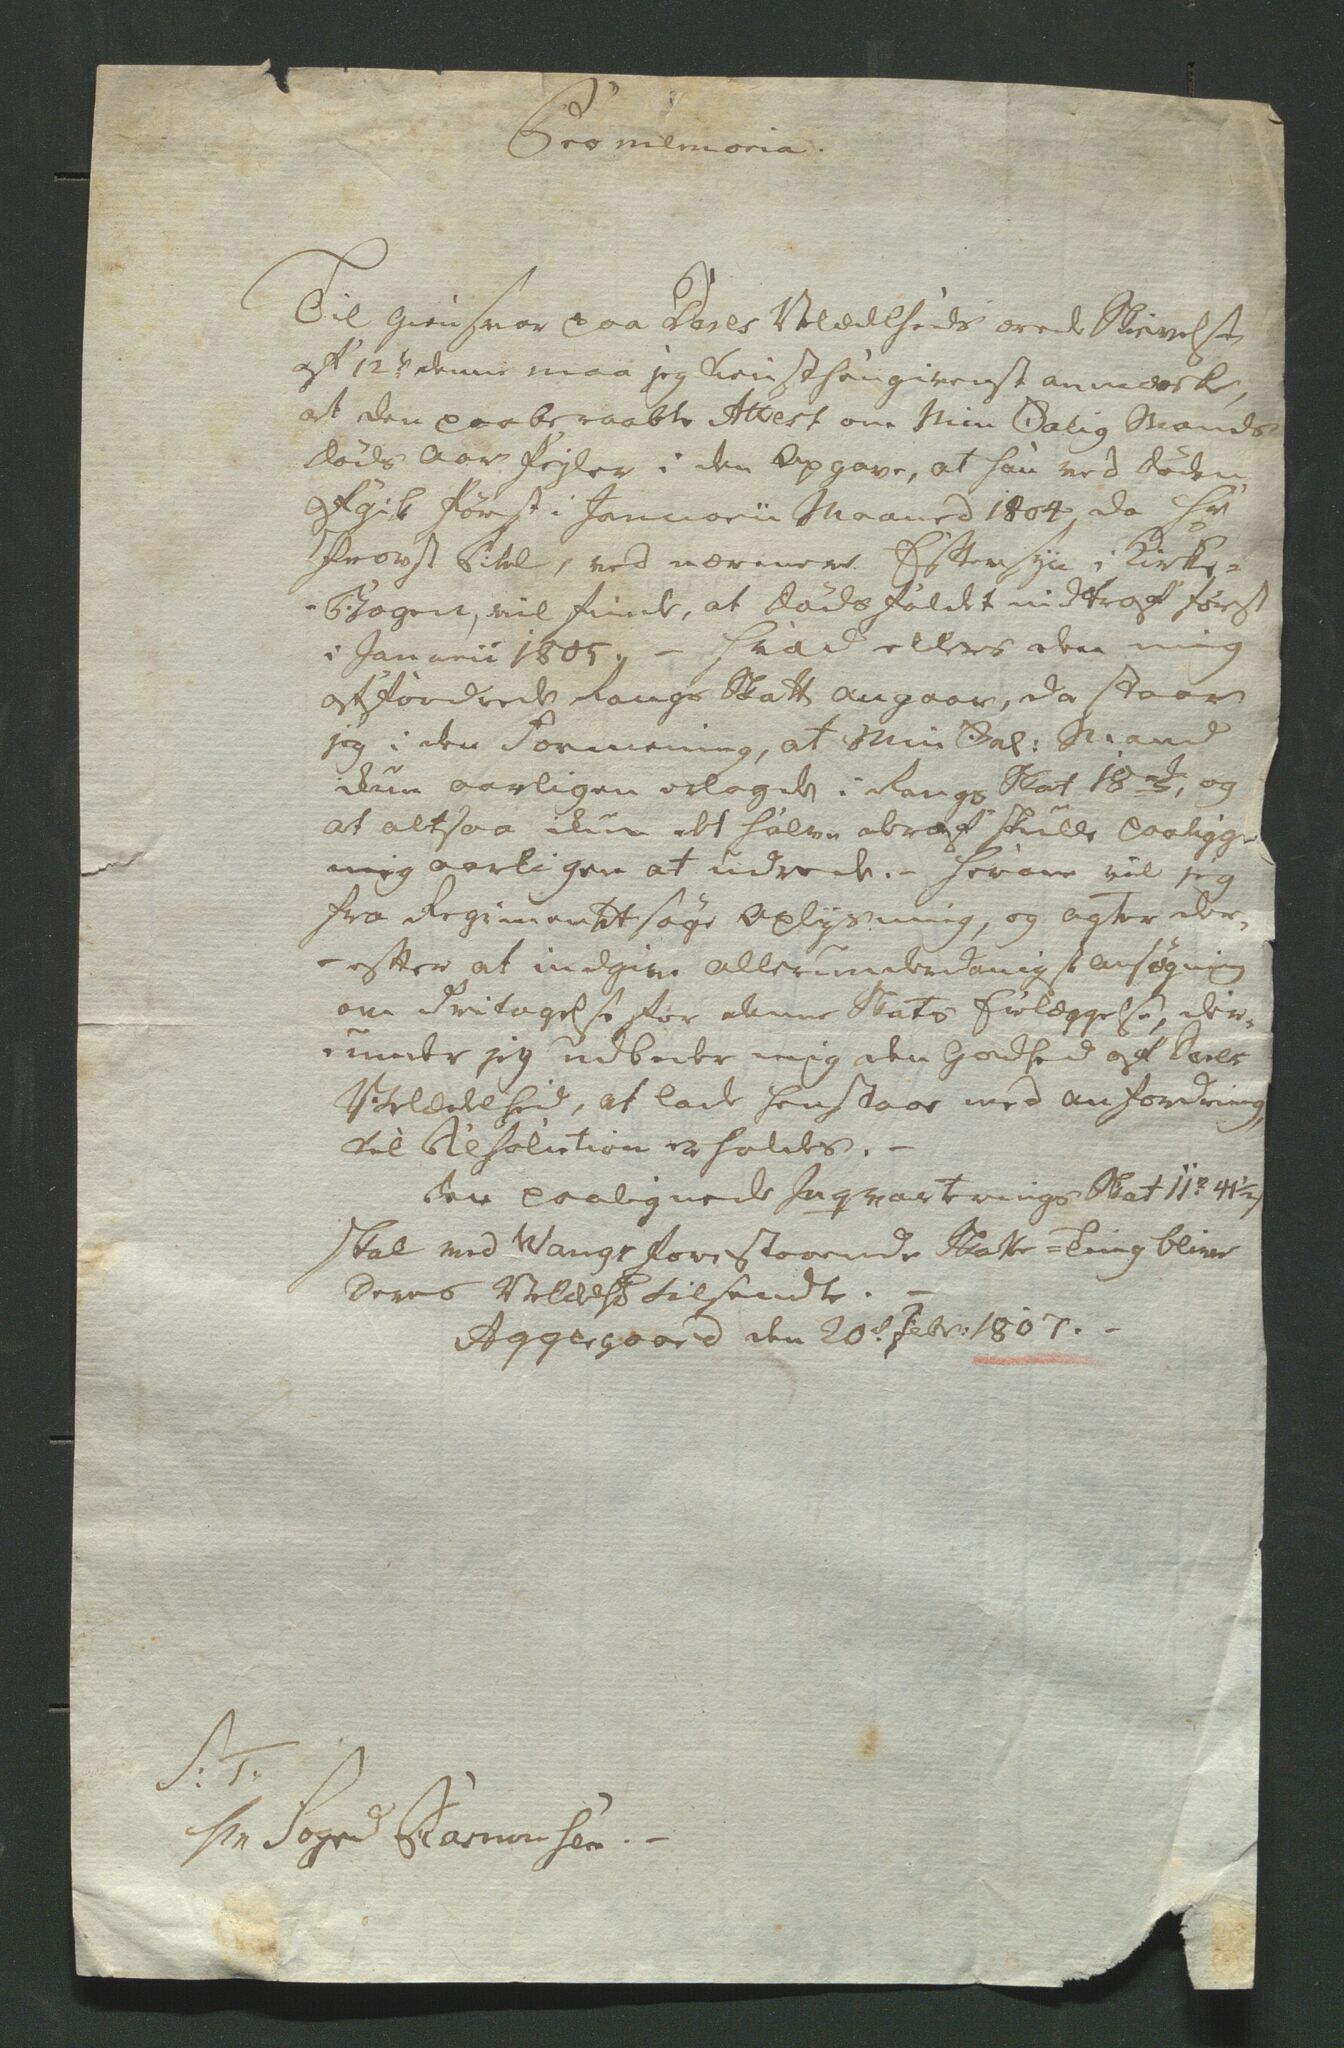 Pro memoria.
Til Giensvar paa Deres Velædelheds ærede Skrivelse
af 12te denne maa jeg tiensthengivenst anmærke,
at den paaberaabte Attest om Min Salig Mands
Døds Aar fejler i den Opgave, at han ved døden
afgik først i Januarii Maaned 1804, da Hr
Provst ved nærmere Eftersyn i Kirke-
-Bogen, vil finde, at dødsfaldet indtraf først
i Januarii 1805. - Hvad ellers den mig
affordrede Rangs Skatt angaar, da staar
jeg i den Formening, at Min Sal: Mand
kun aarligen erlagde i Rangs Skat 18 rd, og
at altsaa kun det halve deraf skulle paaligge
mig aarligen at udrede. - Herom vil jeg
fra Regimentet søge Oplysning, og agter der-
-efter at indgive allerunderdanigst ansøgning
om Fritagelse for denne Skats Erlæggelse, hvor-
under jeg udbeder mig den Godhed af Deres
Velædelhed, at lade henstaae med anfordring,
til Resolution erholdes. -
Den paalignede Inqvarterings Skat 11
skal ved Wangs forestaaende Skatte-Ting blive
Deres Velædelhd tilsendte. -
Aggergaard den 20de Febr: 1807. -
S: T.
Hr Foged Rasmussen. -